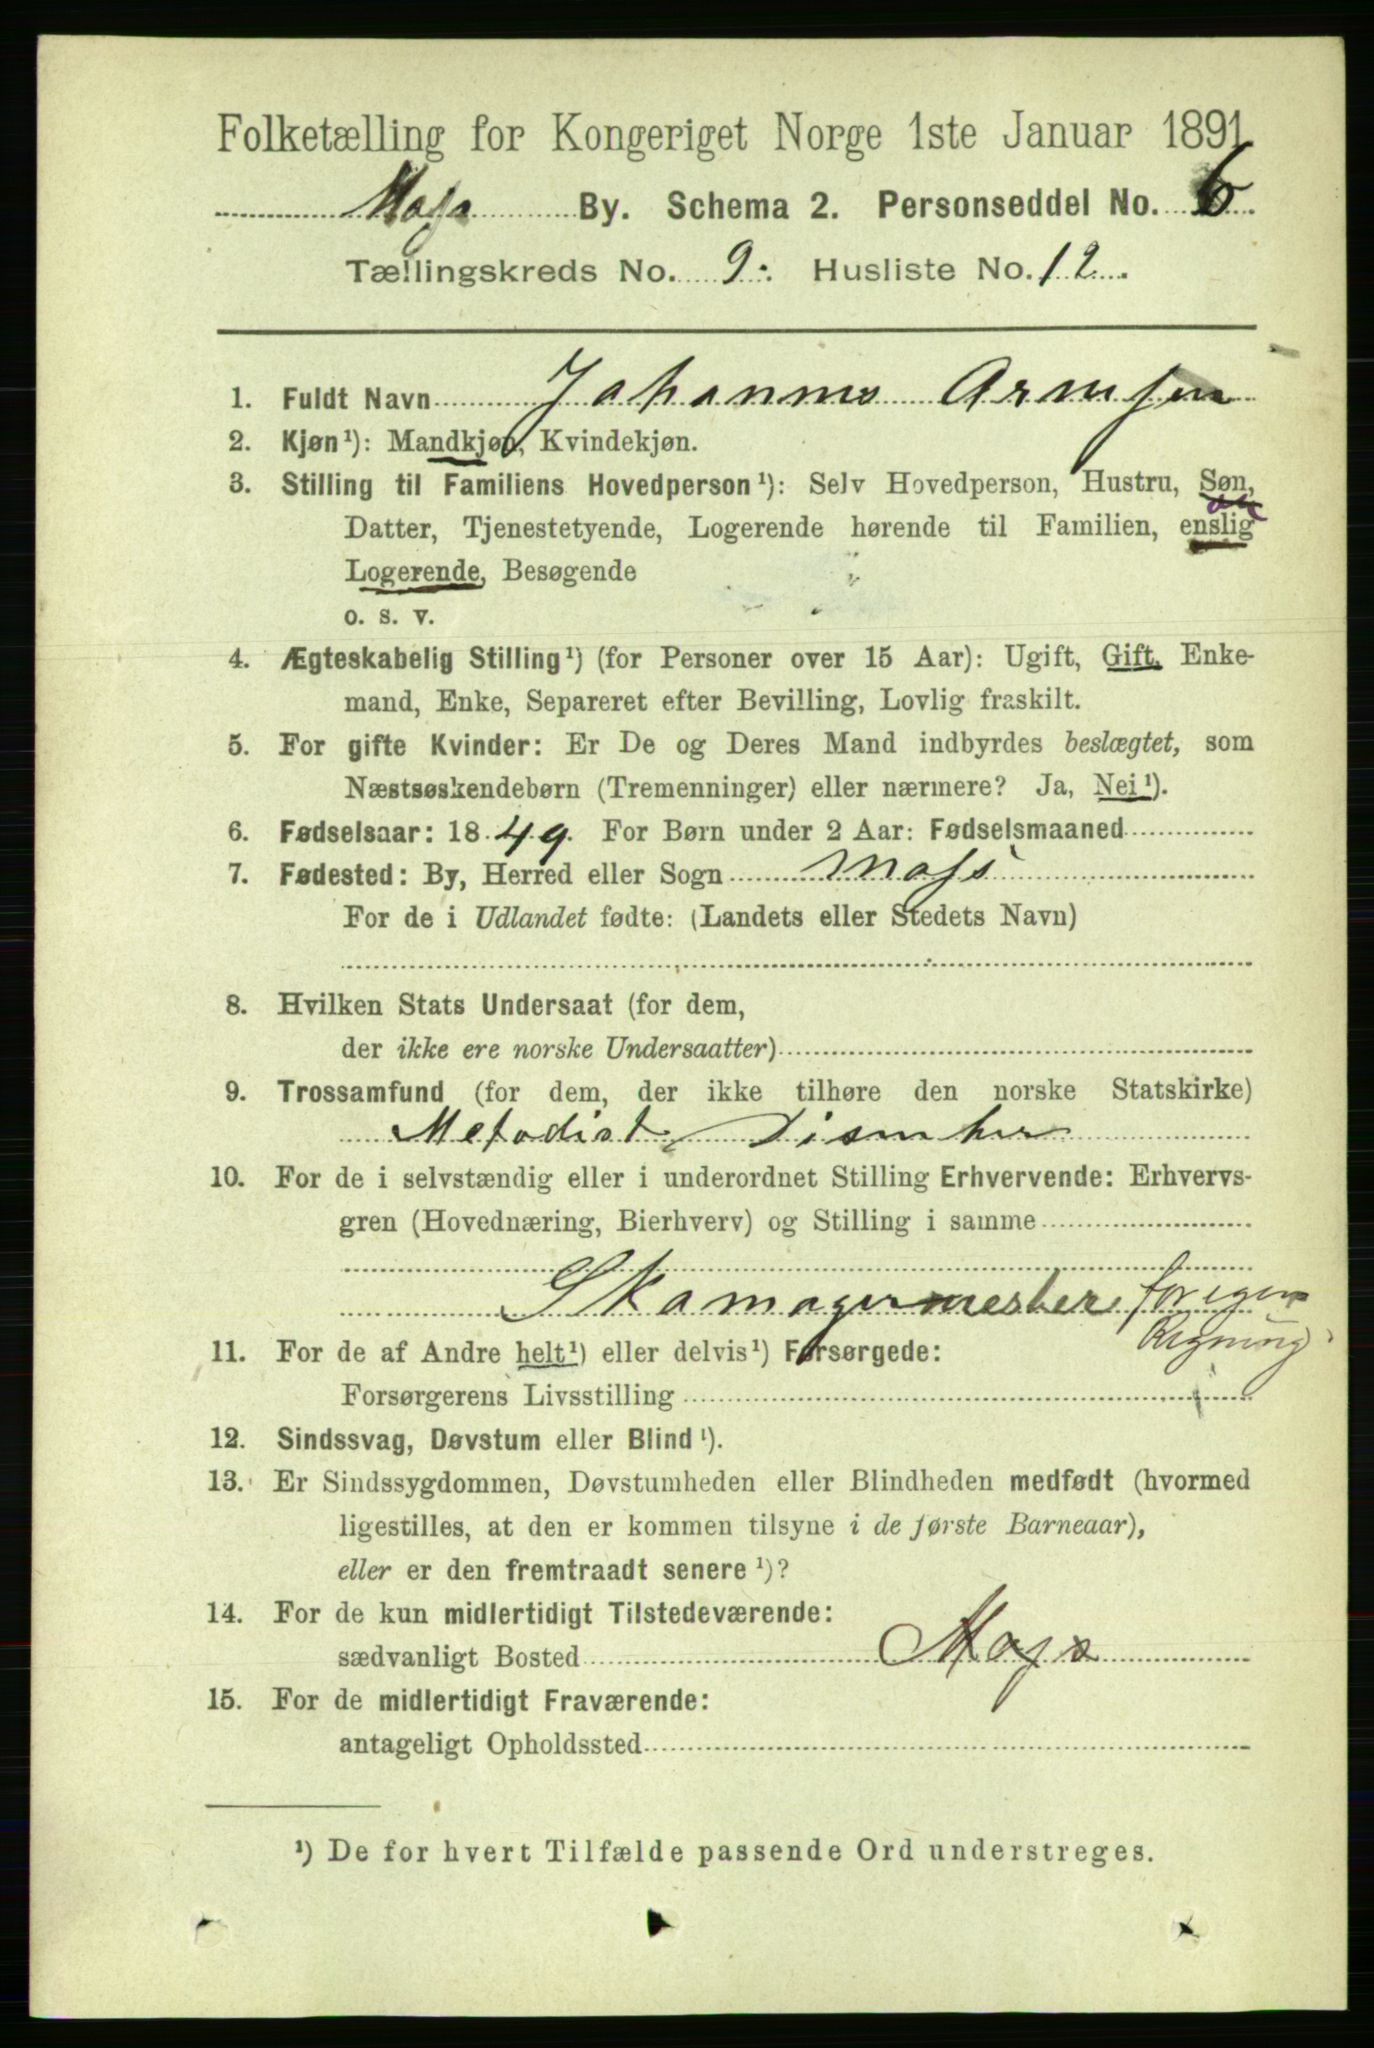 Folketælling for Kongeriget Norge 1ste Januar 1891
Moss By. Schema 2. Personseddel No. 6
Tællingskreds No. 9. Husliste No. 12.
1. Fuldt Navn Johannes Arnesen
2. Kjøn¹): Mandkjøn, Kvindekjøn.
3. Stilling til Familiens Hovedperson¹): Selv Hovedperson, Hustru, Søn,
Datter, Tjenestetyende, Logerende hørende til Familien, enslig
Logerende, Besøgende
o. s. v.
4. Ægteskabelig Stilling¹) (for Personer over 15 Aar): Ugift, Gift, Enke-
mand, Enke, Separeret efter Bevilling, Lovlig fraskilt.
5. For gifte Kvinder: Er De og Deres Mand indbyrdes beslægtet, som
Næstsøskendebørn (Tremenninger) eller nærmere? Ja, Nei¹).
6. Fødselsaar: 1849. For Børn under 2 Aar: Fødselsmaaned
7. Fødested: By, Herred eller Sogn Moss
For de i Udlandet fødte: (Landets eller Stedets Navn)
8. Hvilken Stats Undersaat (for dem,
der ikke ere norske Undersaatter)
9. Trossamfund (for dem, der ikke tilhøre den norske Statskirke)
Metodist
10. For de i selvstændig eller i underordnet Stilling Erhvervende: Erhvervs-
gren (Hovednæring, Bierhverv) og Stilling i samme
Skomagermester for egen
Regning
11. For de af Andre helt¹) eller delvis¹) Forsørgede:
Forsørgerens Livsstilling
12. Sindssvag, Døvstum eller Blind¹).
13. Er Sindssygdommen, Døvstumheden eller Blindheden medfødt (hvormed
ligestilles, at den er kommen tilsyne i de første Barneaar),
eller er den fremtraadt senere¹)?
14. For de kun midlertidigt Tilstedeværende:
sædvanligt Bosted Moss
15. For de midlertidigt Fraværende:
antageligt Opholdssted
¹) De for hvert Tilfælde passende Ord understreges.